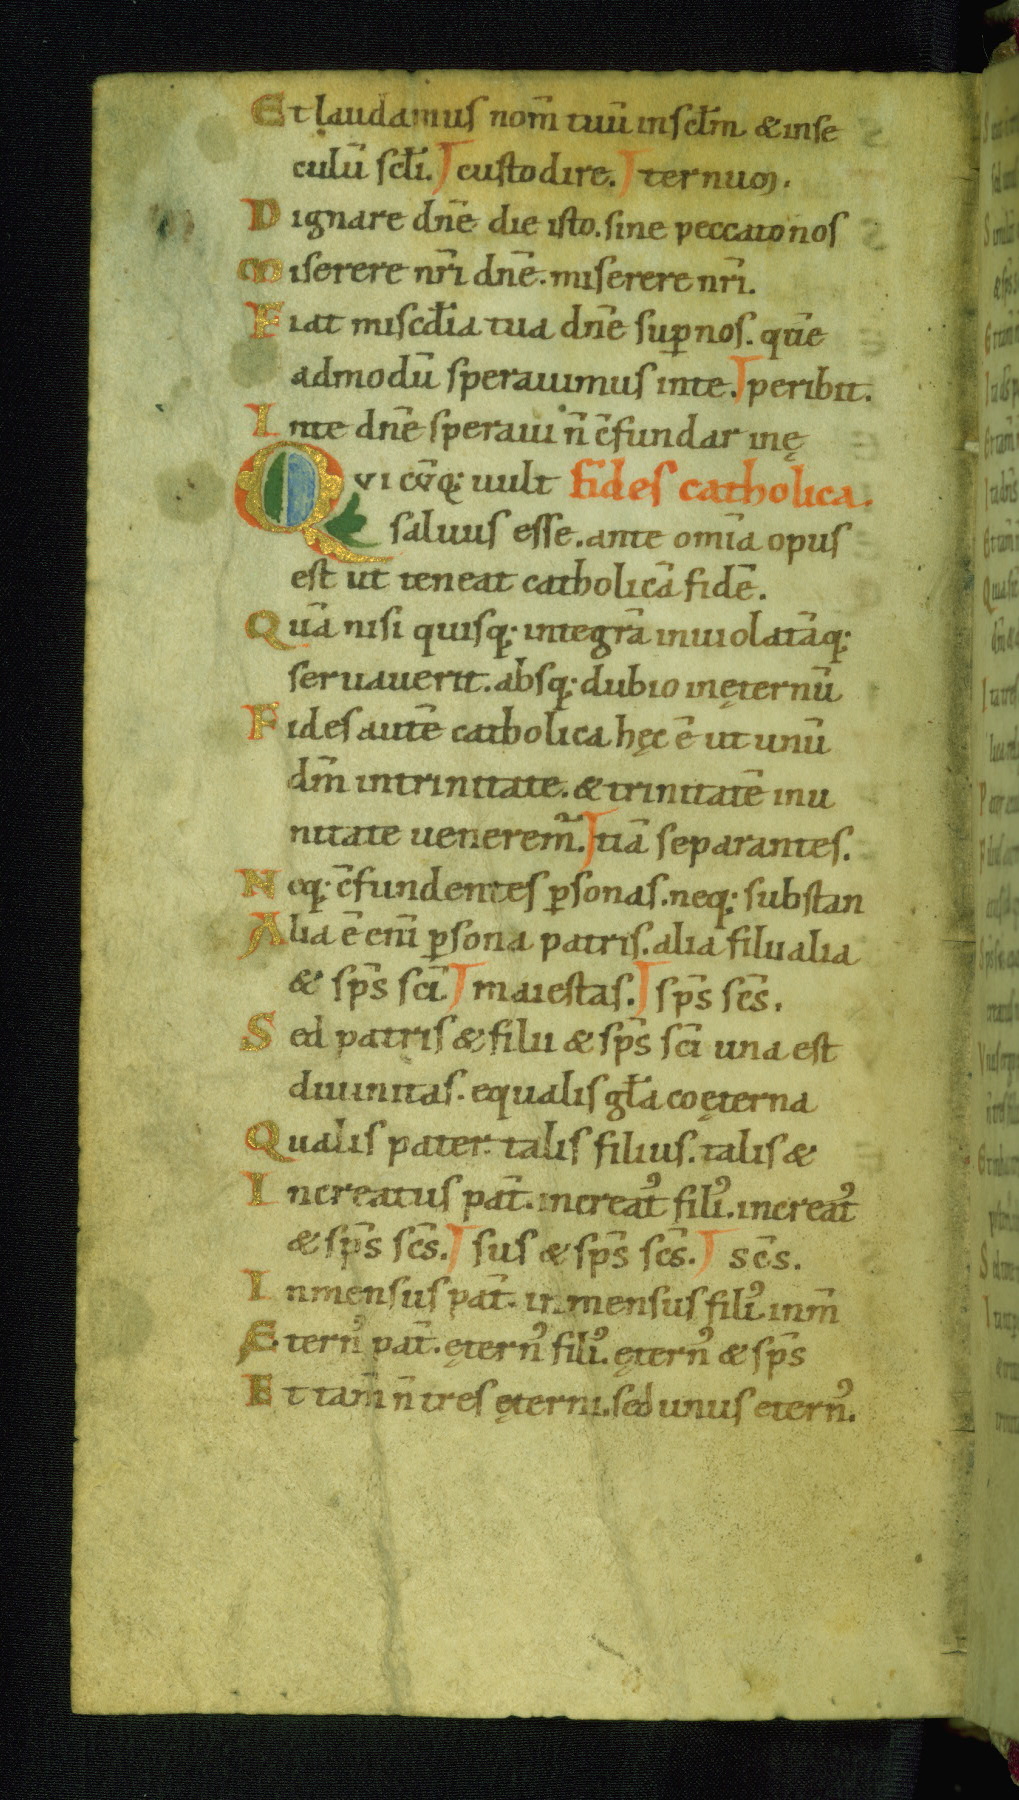 Et laudamus nom̄ tuū in sclm̄ & in se
culū scłi. custodire. ternum.
Dignare dn̄e die isto. sine peccato nos
Miserere nr̄i dn̄e. miserere nr̄i.
Fiat miscđia tua dn̄e sup nos. quē
admodū sperauimus inte. peribit.
Inte dn̄e speraui n̄ c̄fundar inę
Qvi cv̄q; uult fides catholica.
saluus esse. ante omīa opus
est ut teneat catholicā fidē.
Quā nisi quisq; integrā inuiolatāq;
seruauerit. absq; dubio inęternū
Fides autē catholica hęc ē ut unū
dm̄ intrinitate. & trinitatē inu
nitate ueneremr̄. tiā separantes.
Neq; c̄fundentes psonas. neq; substan
Alia ē enī psona patris. alia filii alia
& sp̄s scī. maiestas. sp̄s sc̄s.
Sed patris & filii & sp̄s scī una est
diuinitas. equalis gła coęterna
Qualis pater. talis filius. talis &
Increatus pat̄. increat᾿ fili᾿. increat᾿
& sp̄s sc̄s. sus & sp̄s sc̄s. sc̄s.
Inmensus pat̄. inmensus fili᾿ inm̄
Ętern᾿ pat̄. ętern᾿ fili᾿. ętern᾿ & sp̄s
Et tam̄ n̄ tres ęterni. sed unus etern᾿.